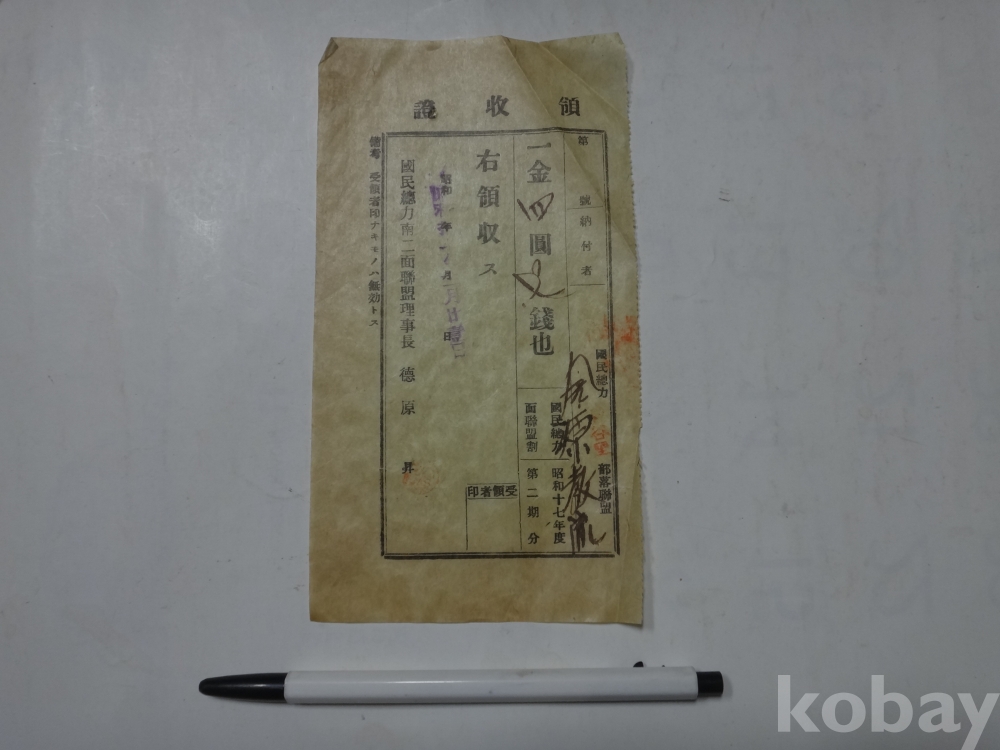 領收證
第 號納付者
國民總力 部落聯盟
一金四圓 錢也
國民總力面聯盟割
昭和十七年度第二期分
右領収ス
受領者印
昭和 年 月 日
國民總力南二面聯盟理事長 德原 昇
備考 受領者印ナキモノハ無効トス
kobay